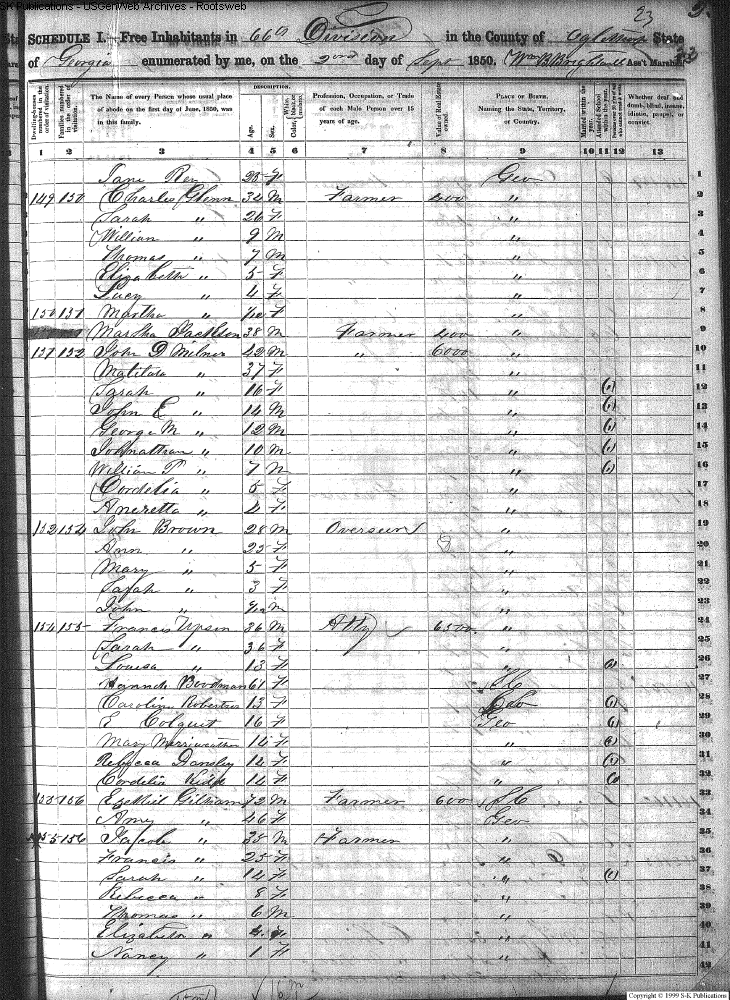 S-K Publications - USGenWeb Archives - Rootsweb
23
SCHEDULE I.—Free Inhabitants in 66th Division in the County of State
of Georgia enumerated by me, on the 2nd day of Sept 1850. Wm B Brightwell Ass't Marshal
DESCRIPTION.
Dwelling-houses numbered in the order of visitation.
Families numbered in the order of visitation.
The Name of every Person whose usual place of abode on the first day of June, 1850, was in this family.
Age.
Sex.
Profession, Occupation, or Trade of each Male Person over 15 years of age.
Value of Real Estate owned.
PLACE OF BIRTH. Naming the State, Territory, or Country.
Married within the year.
Attended School within the year.
Whether deaf and dumb, blind, insane, idiotic, pauper, or convict.
1 2 3 4 5 6 7 8 9 10 11 12 13
Jane 23 F Geo 1
149 Charles Glenn 34 M Farmer 400 " 2
Sarah " 26 F " 3
William " 9 M " 4
Thomas " 7 M " 5
Elizabeth " 5 F " 6
Lucy " 4 F " 7
150 151 Martha " F " 8
Martha Jackson 38 M Farmer 400 " 9
151 152 John D Milner 42 M " 6000 " 10
Matilda " 37 F " 11
Sarah " 16 F " 12
John E " 14 M " 13
George M " 12 M " 14
Johnathan " 10 M " 15
William T " 7 M " 16
Cordelia " 5 F " 17
" 4 F " 18
152 154 John Brown 28 M Overseer " 19
Ann " 25 F " 20
Mary " 5 F " 21
Sarah " 3 F " 22
John " M " 23
154 155 Francis Upson 36 M Atty " 24
Sarah " 36 F " 25
Louisa " 13 F " 26
61 F 27
Caroline Robertson 13 F Geo 28
E Colquit 16 F Geo 29
Mary Merriweather 14 F " 30
Rebecca 12 F " 31
Cordelia 12 F " 32
155 156 Ezekiel Gilham 72 M Farmer 600 S C 33
Amy " 46 F Geo 34
155 156 Jacob " 35 M Farmer " 35
Francis " 25 F " 36
Sarah " 14 F " 37
Rebecca " 8 F " 38
Thomas " 6 M " 39
Elizabeth " 4 F " 40
Nancy " 1 F " 41
42
Copyright © 1999 S-K Publications